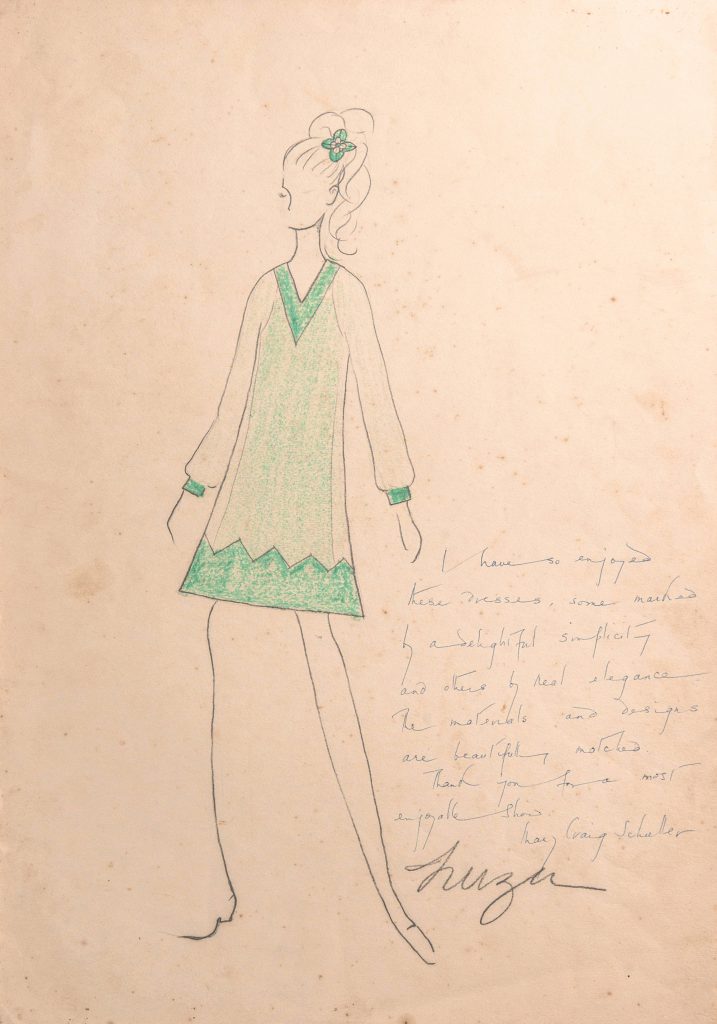 I have so enjoyed
these dresses, some marked
by a delightful simplicity
and others by real elegance
The materials and designs
are beautifully matched.
Thank you for a most
enjoyable show
Mary Craig Schuller